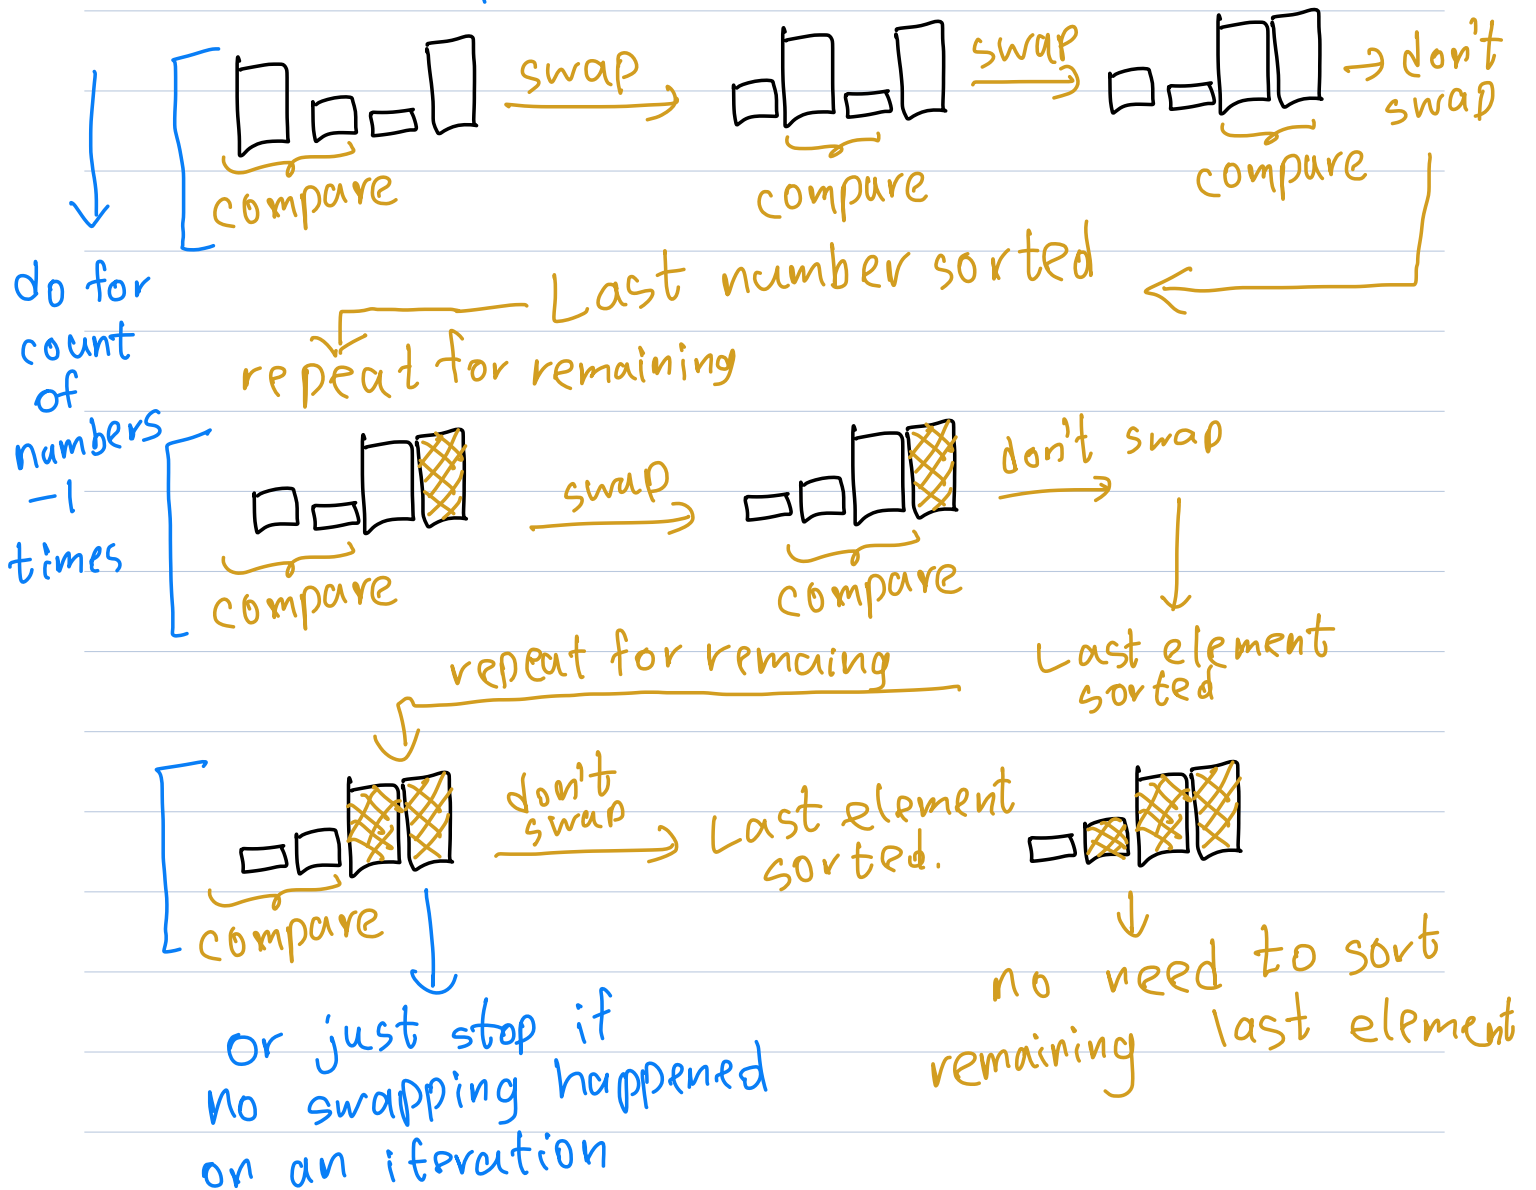 swap
swap
→ don't
swap
compare
compare
compare
Last number sorted
do for
count
of
numbers
-1
times
repeat for remaining
swap
don't swap
compare
compare
Last element
sorted
repeat for remaing
don't
swap
Last element
sorted.
compare
no need to sort
remaining last element
or just stop if
no swapping happened
on an iteration